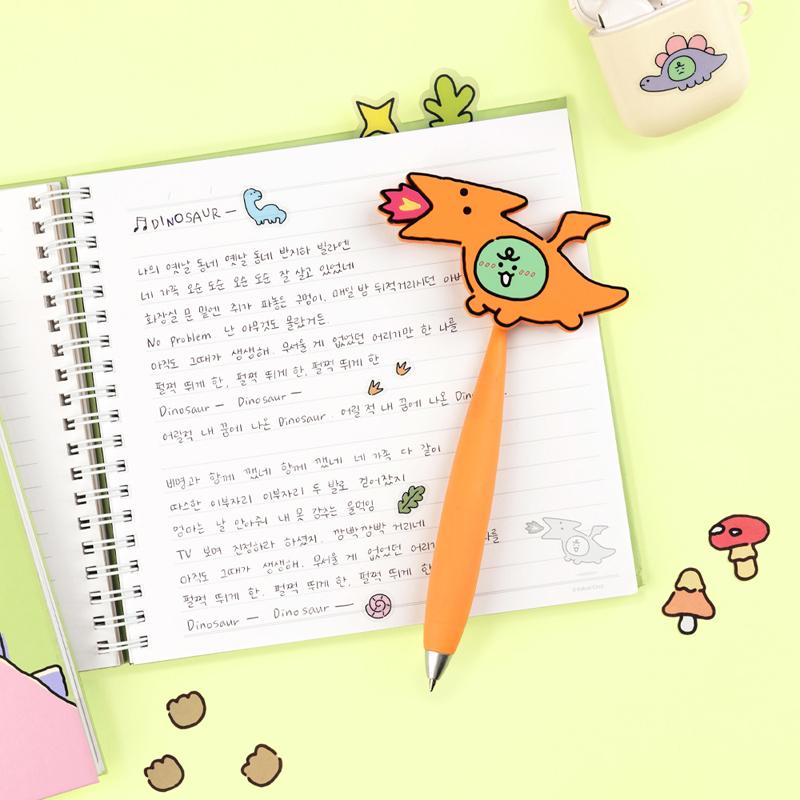 ♫ DINOSAUR —
나의 옛날 동네 옛날 동네 반지하 빌라엔
네 가족 오순 도순 오순 도순 잘 살고 있었네
화장실 문 밑엔 쥐가 파놓은 구멍이, 매일 밤 뒤적거리시던 아빠
No problem 난 아무것도 몰랐거든.
아직도 그때가 생생해. 무서울 게 없었던 어리기만 한 나를
펄쩍 뛰게 한, 펄쩍 뛰게 한, 펄쩍 뛰게 한
Dinosaur — Dinosaur —
어릴적 내 꿈에 나온 Dinosaur. 어릴 적 내 꿈에 나온 Din
비명과 함께 깼네 함께 깼네 네 가족 다 같이
따스한 이부자리 이부자리 두 발로 걷어찼지
엄마는 날 안아줘 내 못 감추는 울먹임
TV 보며 진정하라 하셨지. 깜빡깜빡 거리네
아직도 그때가 생생해. 무서울 게 없었던 어리기 를
펄쩍 뛰게 한, 펄쩍 뛰게 한, 펄쩍 뛰게 한
Dinosaur — Dinosaur —